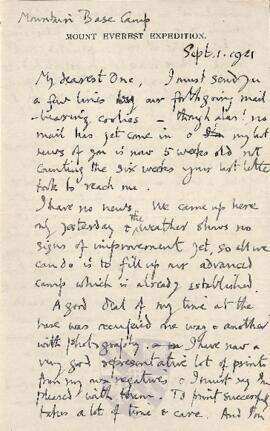 Mountain Base Camp
MOUNT EVEREST EXPEDITION.
Sept. 1. 1921
My dearest One, I must send you
a few lines by our forthgoing mail
-bearing coolies - though alas! no
mail has yet come in & my last
news of you is now 5 weeks old not
counting the six weeks your last letter
took to reach me.
I have no news. We came up here
yesterday & the weather shows no
signs of improvement yet, so all we
can do is to fill up our advanced
camp which is already established.
A good deal of my time at the
base was occupied one way & another
with photography & I have now a
very good representative lot of prints
from my own negatives & I must say I'm
pleased with them. To print successfully
takes a lot of time & care. And